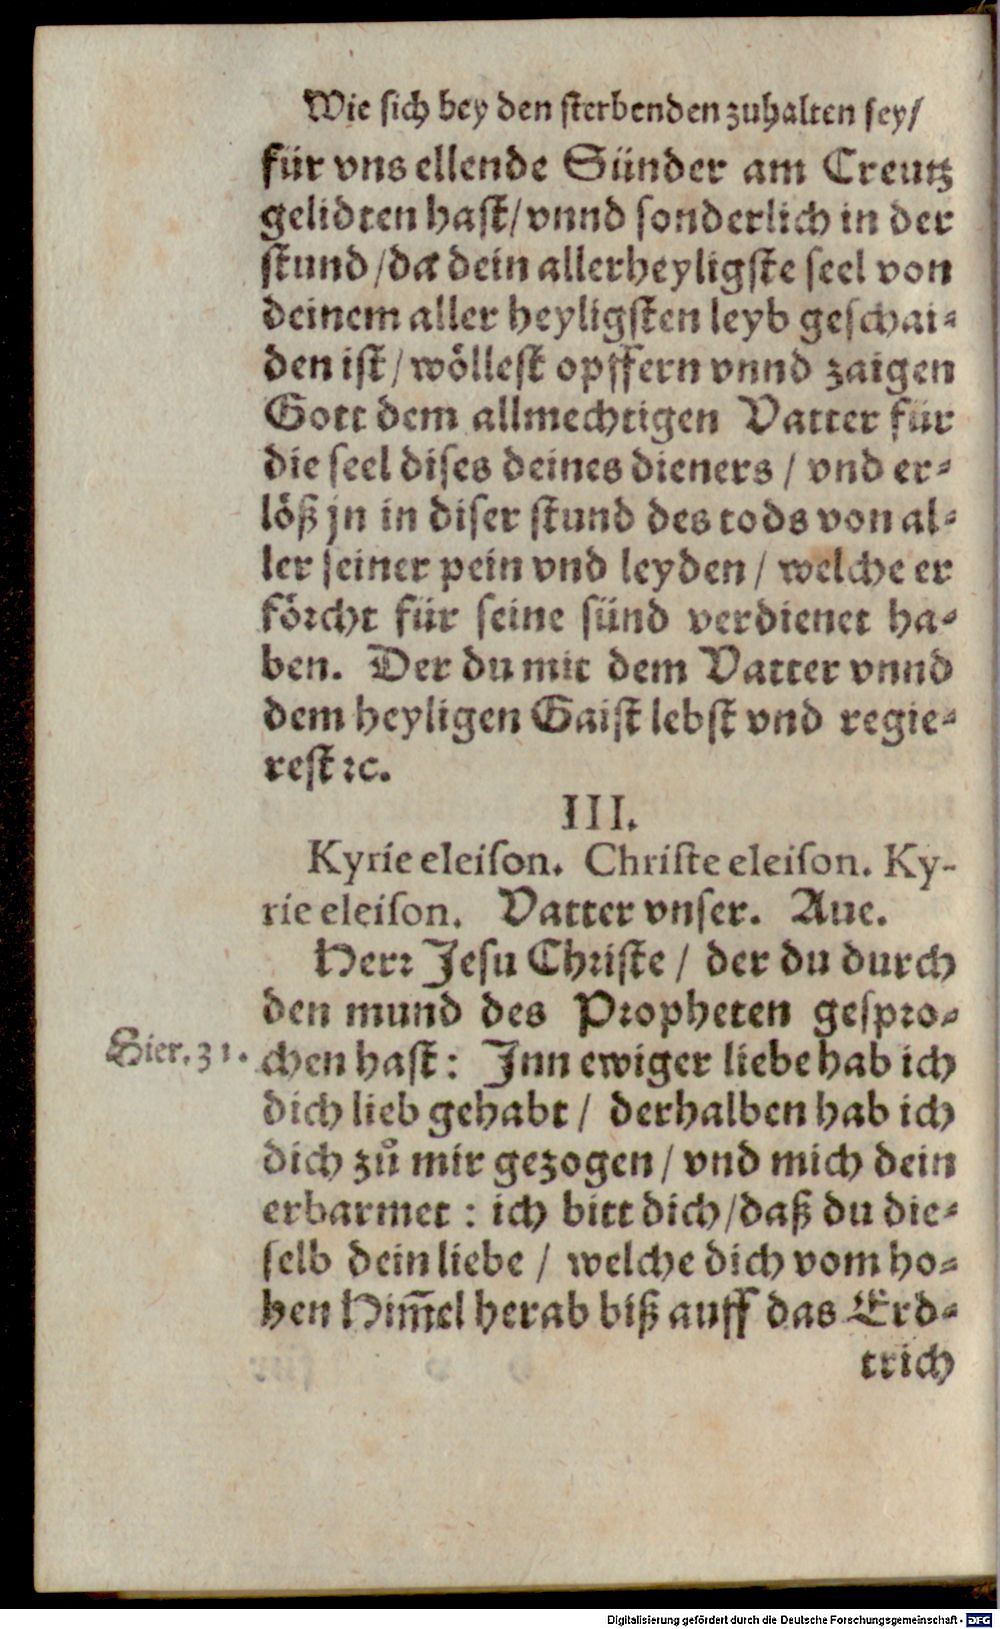 Wie sich bey den sterbenden zuhalten sey/
für vns ellende Sünder am Creutz
gelidten hast/vnnd sonderlich in der
stund/da dein allerheyligste seel von
deinem aller heyligsten leyb geschai-
den ist/wöllest opffern vnnd zaigen
Gott dem allmechtigen Vatter für
die seel dises deines dieners / vnd er-
löß jn in diser stund des tods von al-
ler seiner pein vnd leyden / welche er
förcht für seine sünd verdienet ha-
ben. Der du mit dem Vatter vnnd
dem heyligen Gaist lebst vnd regie-
rest ꝛc.
III.
Kyrie eleison. Christe eleison. Ky-
rie eleison. Vatter vnser. Aue.
Herr Jesu Christe / der du durch
den mund des Propheten gespro-
Hier. 31. chen hast: Inn ewiger liebe hab ich
dich lieb gehabt / derhalben hab ich
dich zů mir gezogen / vnd mich dein
erbarmet : ich bitt dich/daß du die-
selb dein liebe / welche dich vom ho-
hen Him̄el herab biß auff das Erd-
trich
Digitalisierung gefördert durch die Deutsche Forschungsgemeinschaft - DFG